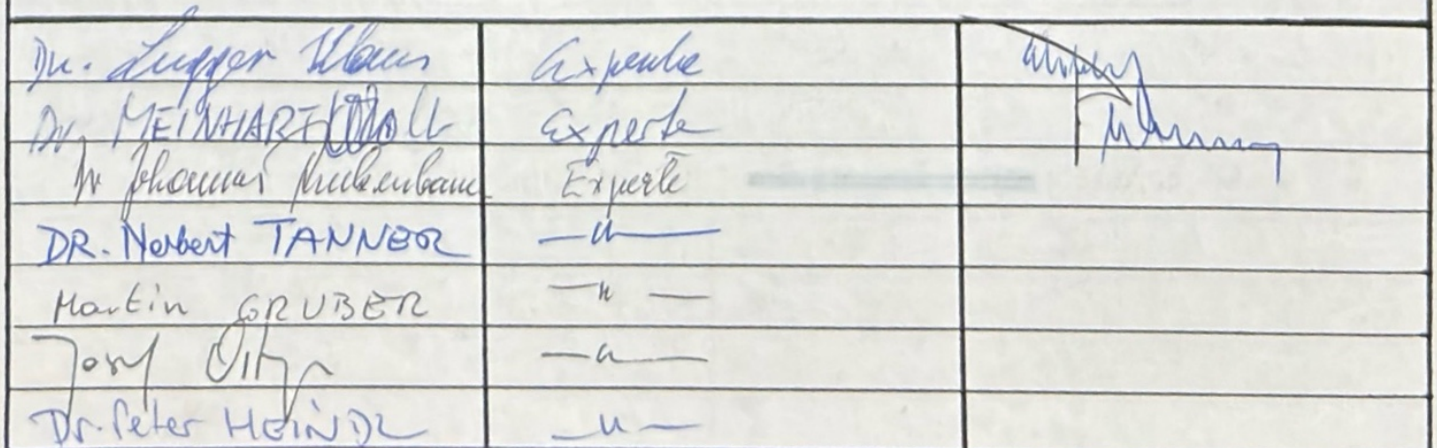 Dr. Lugger Klaus Experte
Dr. MEINHART Experte
Dr Johannes Experte
DR. Norbert TANNER —"—
Martin GRUBER —"—
Josef —"—
Dr. Peter HEINDL —"—